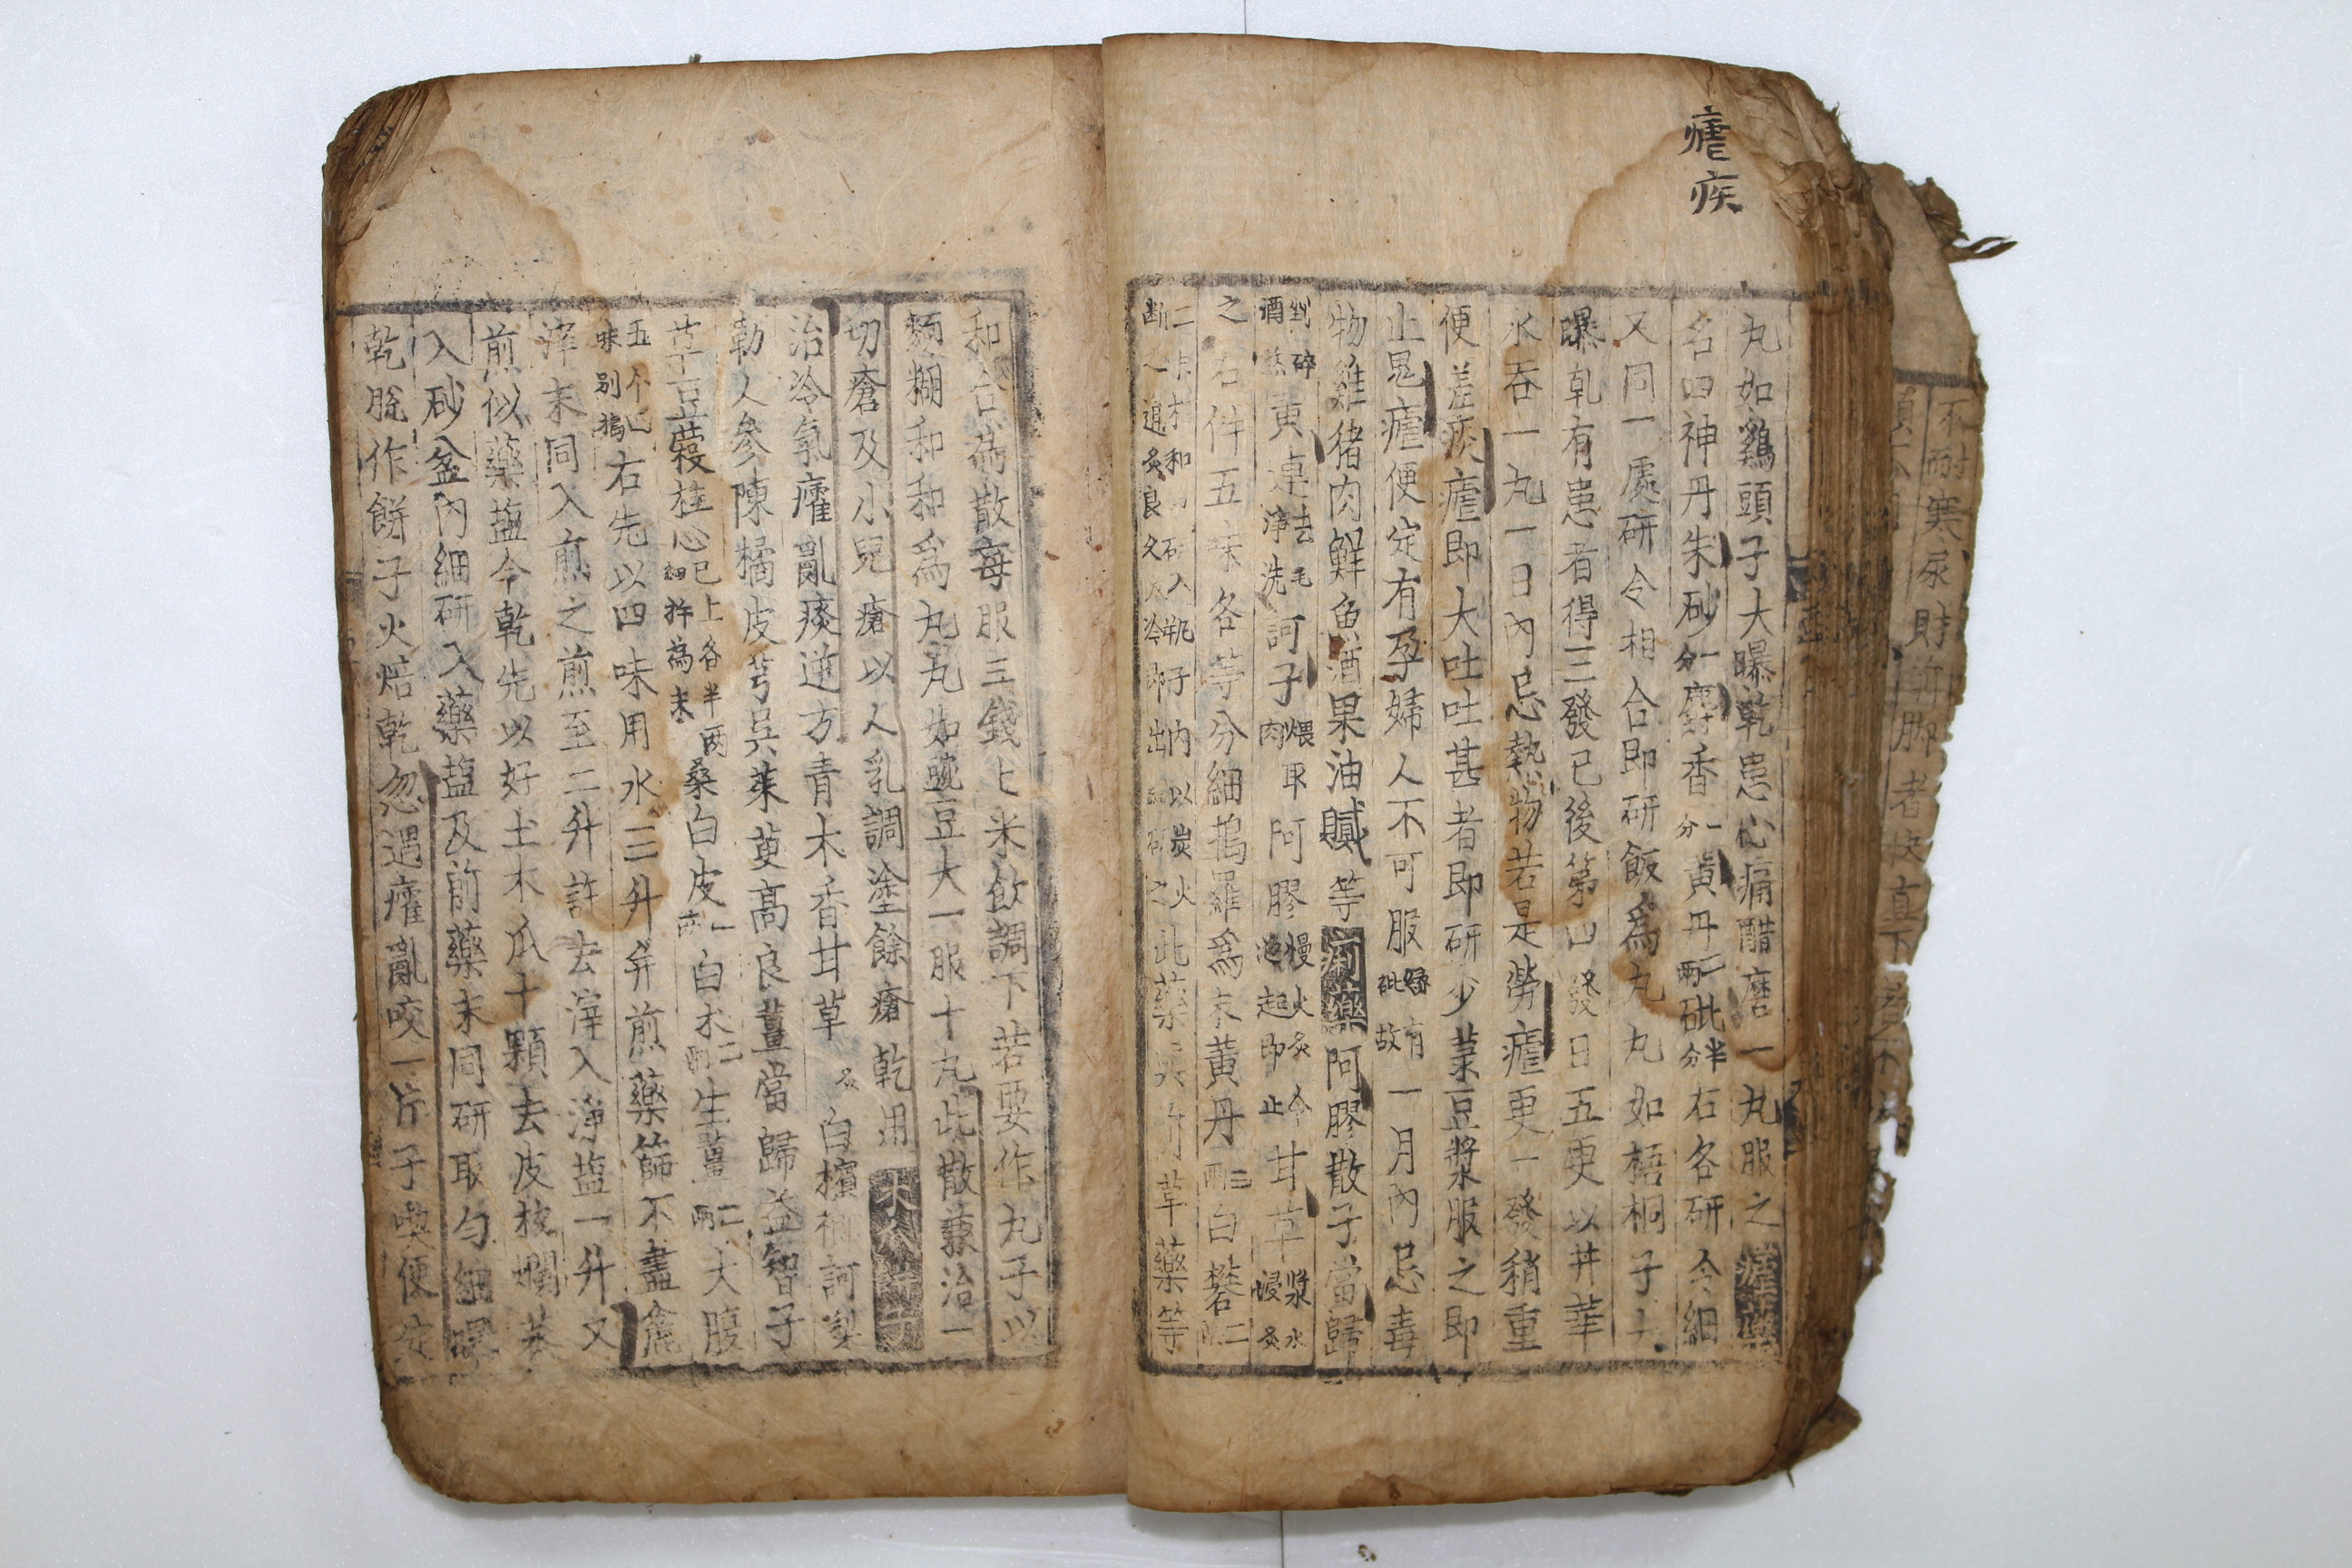 瘧疾
丸如鷄頭子大曝乾患心痛醋磨一丸服之瘧藥
名四神丹朱砂一分麝香一分黃丹二兩砒半分右各研令細
又同一處研令相合即研飯爲丸丸如梧桐子大
曝乳有患者得三發已後第四發日五更以井華
水吞一丸一日內忌熱物若是勞瘧更一發稍重
便差痰瘧即大吐吐甚者即研少菉豆漿服之即
止鬼瘧便定有孕婦人不可服緣有砒故一月內忌毒
物雞猪肉鮮魚酒果油膩等痢藥阿膠散子當歸
剉碎酒黃連去毛淨洗訶子煨取肉阿膠慢火炙令泡起即止甘草漿水浸炙
之右件五味各等分細擣羅爲末黃丹三兩白礬二
二味和研入瓶子內以炭火斷之通炙良久冷即出細研之此藥草藥等
和合爲散每服三錢匕米飲調下若要作丸子以
麵糊和和爲丸丸如豌豆大一服十丸此散兼治一
切瘡及小兒瘡以人乳調塗餘瘡乾用木瓜餅子
治冷氣癨亂痰逆方青木香甘草炙白檳榔訶梨
勒人參陳橘皮芎吳茱萸高良薑當歸益智子
草豆蔻桂心已上各半兩細杵為末桑白皮一兩白朮二兩生薑二兩大腹
五个已味別搗右先以四味用水三升并煎藥篩不盡麄
滓末同入煎之煎至二升許去滓入淨塩一升又
煎似藥塩令乾先以好土木瓜十顆去皮核爛蒸
入砂盆內細研入藥塩及前藥末同研取勻細曝
乾脆作餅子火焙乾忽遇癨亂咬一片子喫便定
不耐寒尿財前脚者快直下